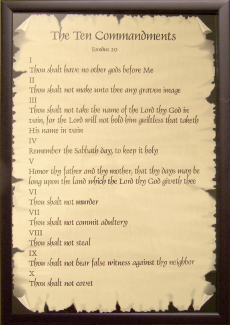 The Ten Commandments
Exodus 20
I
Thou shalt have no other gods before Me
II
Thou shalt not make unto thee any graven image
III
Thou shalt not take the name of the Lord thy God in
vain, for the Lord will not hold him guiltless that taketh
His name in vain
IV
Remember the Sabbath day, to keep it holy
V
Honor thy father and thy mother, that thy days may be
long upon the land which the Lord thy God giveth thee
VI
Thou shalt not murder
VII
Thou shalt not commit adultery
VIII
Thou shalt not steal
IX
Thou shalt not bear false witness against thy neighbor
X
Thou shalt not covet